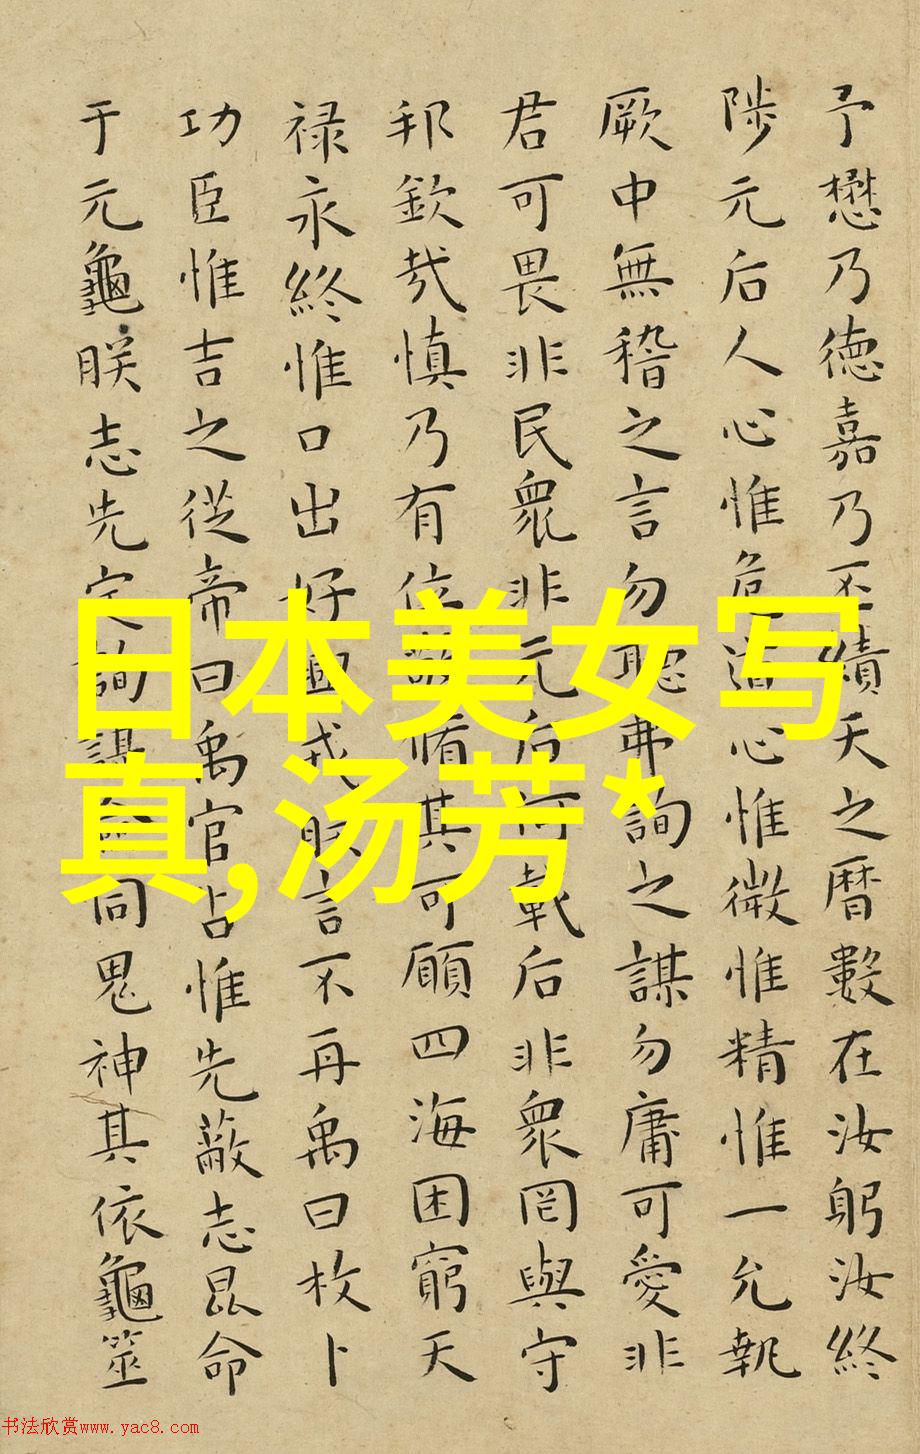 予懋乃德嘉乃丕績天之曆數在汝躬汝終
陟元后人心惟危道心惟微惟精惟一允執
厥中無稽之言勿聽弗詢之謀勿庸可愛非
君可畏非民衆非元后何戴后非衆罔與守
邦欽哉慎乃有位敬脩其可願四海困窮天
禄永終惟口出好興戎朕言不再禹曰枚卜
功臣惟吉之從帝曰禹官占惟先蔽志昆命
于元龜朕志先定詢謀僉同鬼神其依龜筮
日本美女写
真,汤芳*
书法欣赏www.yac8.com